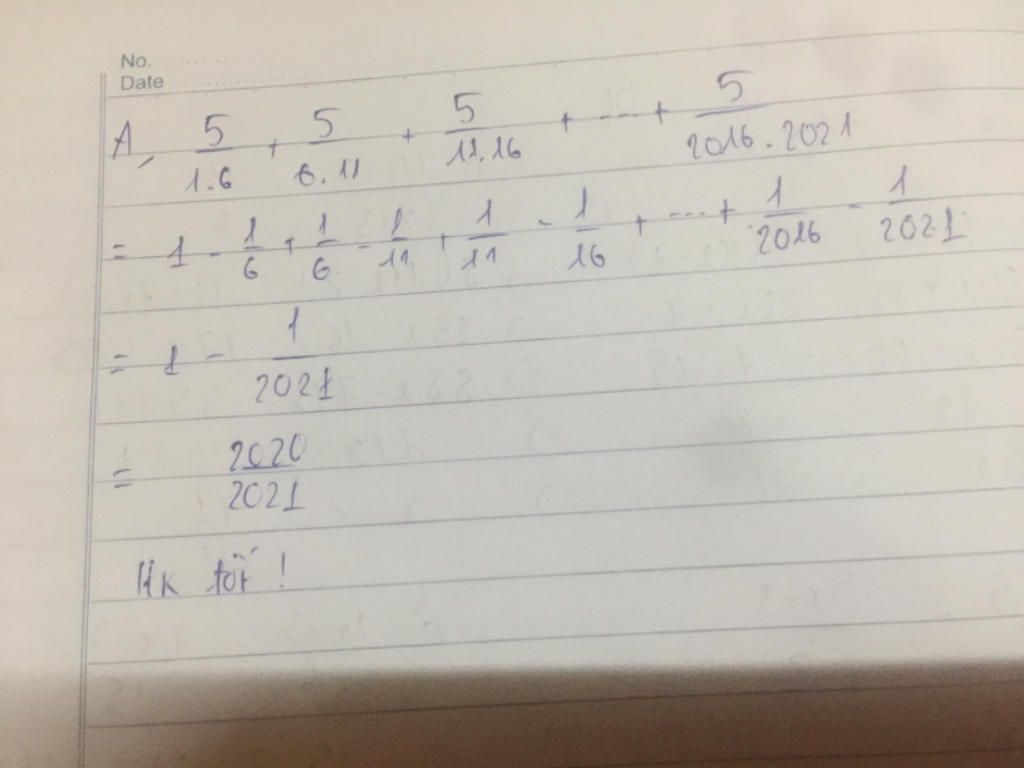 No. ..........
Date ....................
A, 5/1.6 + 5/6.11 + 5/11.16 + ... + 5/2016.2021
= 1 - 1/6 + 1/6 - 1/11 + 1/11 - 1/16 + ... + 1/2016 - 1/2021
= 1 - 1/2021
= 2020/2021
Hk tốt !